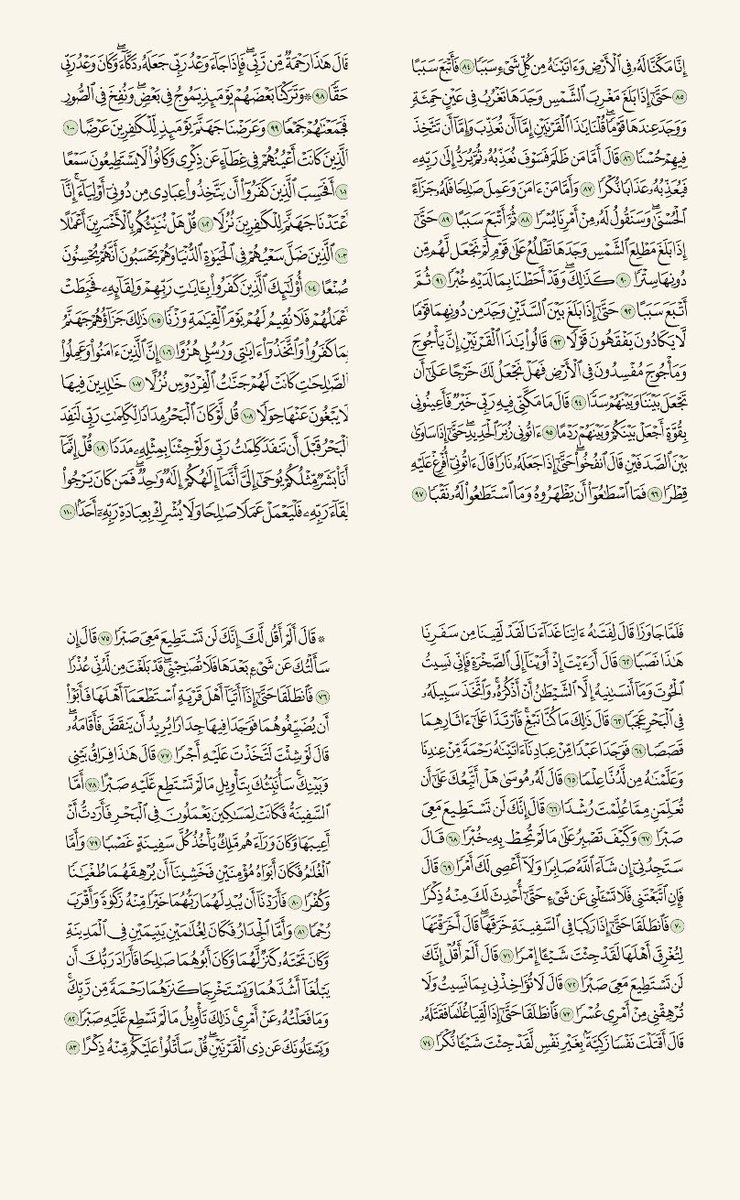 إِنَّا مَكَّنَّا لَهُۥ فِى ٱلْأَرْضِ وَءَاتَيْنَٰهُ مِن كُلِّ شَىْءٍ سَبَبًا ٨٤ فَأَتْبَعَ سَبَبًا
٨٥ حَتَّىٰٓ إِذَا بَلَغَ مَغْرِبَ ٱلشَّمْسِ وَجَدَهَا تَغْرُبُ فِى عَيْنٍ حَمِئَةٍ
وَوَجَدَ عِندَهَا قَوْمًا ۗ قُلْنَا يَٰذَا ٱلْقَرْنَيْنِ إِمَّآ أَن تُعَذِّبَ وَإِمَّآ أَن تَتَّخِذَ
فِيهِمْ حُسْنًا ٨٦ قَالَ أَمَّا مَن ظَلَمَ فَسَوْفَ نُعَذِّبُهُۥ ثُمَّ يُرَدُّ إِلَىٰ رَبِّهِۦ
فَيُعَذِّبُهُۥ عَذَابًا نُّكْرًا ٨٧ وَأَمَّا مَنْ ءَامَنَ وَعَمِلَ صَٰلِحًا فَلَهُۥ جَزَآءً
ٱلْحُسْنَىٰ ۖ وَسَنَقُولُ لَهُۥ مِنْ أَمْرِنَا يُسْرًا ٨٨ ثُمَّ أَتْبَعَ سَبَبًا ٨٩ حَتَّىٰٓ
إِذَا بَلَغَ مَطْلِعَ ٱلشَّمْسِ وَجَدَهَا تَطْلُعُ عَلَىٰ قَوْمٍ لَّمْ نَجْعَل لَّهُم مِّن
دُونِهَا سِتْرًا ٩٠ كَذَٰلِكَ ۖ وَقَدْ أَحَطْنَا بِمَا لَدَيْهِ خُبْرًا ٩١ ثُمَّ
أَتْبَعَ سَبَبًا ٩٢ حَتَّىٰٓ إِذَا بَلَغَ بَيْنَ ٱلسَّدَّيْنِ وَجَدَ مِن دُونِهِمَا قَوْمًا
لَّا يَكَادُونَ يَفْقَهُونَ قَوْلًا ٩٣ قَالُوا۟ يَٰذَا ٱلْقَرْنَيْنِ إِنَّ يَأْجُوجَ
وَمَأْجُوجَ مُفْسِدُونَ فِى ٱلْأَرْضِ فَهَلْ نَجْعَلُ لَكَ خَرْجًا عَلَىٰٓ أَن
تَجْعَلَ بَيْنَنَا وَبَيْنَهُمْ سَدًّا ٩٤ قَالَ مَا مَكَّنِّى فِيهِ رَبِّى خَيْرٌ فَأَعِينُونِى
بِقُوَّةٍ أَجْعَلْ بَيْنَكُمْ وَبَيْنَهُمْ رَدْمًا ٩٥ ءَاتُونِى زُبَرَ ٱلْحَدِيدِ ۖ حَتَّىٰٓ إِذَا سَاوَىٰ
بَيْنَ ٱلصَّدَفَيْنِ قَالَ ٱنفُخُوا۟ ۖ حَتَّىٰٓ إِذَا جَعَلَهُۥ نَارًا قَالَ ءَاتُونِىٓ أُفْرِغْ عَلَيْهِ
قِطْرًا ٩٦ فَمَا ٱسْطَٰعُوٓا۟ أَن يَظْهَرُوهُ وَمَا ٱسْتَطَٰعُوا۟ لَهُۥ نَقْبًا ٩٧
قَالَ هَٰذَا رَحْمَةٌ مِّن رَّبِّى ۖ فَإِذَا جَآءَ وَعْدُ رَبِّى جَعَلَهُۥ دَكَّآءَ ۖ وَكَانَ وَعْدُ رَبِّى
حَقًّا ٩٨ ۞ وَتَرَكْنَا بَعْضَهُمْ يَوْمَئِذٍ يَمُوجُ فِى بَعْضٍ ۖ وَنُفِخَ فِى ٱلصُّورِ
فَجَمَعْنَٰهُمْ جَمْعًا ٩٩ وَعَرَضْنَا جَهَنَّمَ يَوْمَئِذٍ لِّلْكَٰفِرِينَ عَرْضًا ١٠٠
ٱلَّذِينَ كَانَتْ أَعْيُنُهُمْ فِى غِطَآءٍ عَن ذِكْرِى وَكَانُوا۟ لَا يَسْتَطِيعُونَ سَمْعًا
١٠١ أَفَحَسِبَ ٱلَّذِينَ كَفَرُوٓا۟ أَن يَتَّخِذُوا۟ عِبَادِى مِن دُونِىٓ أَوْلِيَآءَ ۚ إِنَّآ
أَعْتَدْنَا جَهَنَّمَ لِلْكَٰفِرِينَ نُزُلًا ١٠٢ قُلْ هَلْ نُنَبِّئُكُم بِٱلْأَخْسَرِينَ أَعْمَٰلًا
١٠٣ ٱلَّذِينَ ضَلَّ سَعْيُهُمْ فِى ٱلْحَيَوٰةِ ٱلدُّنْيَا وَهُمْ يَحْسَبُونَ أَنَّهُمْ يُحْسِنُونَ
صُنْعًا ١٠٤ أُو۟لَٰٓئِكَ ٱلَّذِينَ كَفَرُوا۟ بِـَٔايَٰتِ رَبِّهِمْ وَلِقَآئِهِۦ فَحَبِطَتْ
أَعْمَٰلُهُمْ فَلَا نُقِيمُ لَهُمْ يَوْمَ ٱلْقِيَٰمَةِ وَزْنًا ١٠٥ ذَٰلِكَ جَزَآؤُهُمْ جَهَنَّمُ
بِمَا كَفَرُوا۟ وَٱتَّخَذُوٓا۟ ءَايَٰتِى وَرُسُلِى هُزُوًا ١٠٦ إِنَّ ٱلَّذِينَ ءَامَنُوا۟ وَعَمِلُوا۟
ٱلصَّٰلِحَٰتِ كَانَتْ لَهُمْ جَنَّٰتُ ٱلْفِرْدَوْسِ نُزُلًا ١٠٧ خَٰلِدِينَ فِيهَا
لَا يَبْغُونَ عَنْهَا حِوَلًا ١٠٨ قُل لَّوْ كَانَ ٱلْبَحْرُ مِدَادًا لِّكَلِمَٰتِ رَبِّى لَنَفِدَ
ٱلْبَحْرُ قَبْلَ أَن تَنفَدَ كَلِمَٰتُ رَبِّى وَلَوْ جِئْنَا بِمِثْلِهِۦ مَدَدًا ١٠٩ قُلْ إِنَّمَآ
أَنَا۠ بَشَرٌ مِّثْلُكُمْ يُوحَىٰٓ إِلَىَّ أَنَّمَآ إِلَٰهُكُمْ إِلَٰهٌ وَٰحِدٌ ۖ فَمَن كَانَ يَرْجُوا۟
لِقَآءَ رَبِّهِۦ فَلْيَعْمَلْ عَمَلًا صَٰلِحًا وَلَا يُشْرِكْ بِعِبَادَةِ رَبِّهِۦٓ أَحَدًۢا ١١٠
فَلَمَّا جَاوَزَا قَالَ لِفَتَىٰهُ ءَاتِنَا غَدَآءَنَا لَقَدْ لَقِينَا مِن سَفَرِنَا
هَٰذَا نَصَبًا ٦٢ قَالَ أَرَءَيْتَ إِذْ أَوَيْنَآ إِلَى ٱلصَّخْرَةِ فَإِنِّى نَسِيتُ
ٱلْحُوتَ وَمَآ أَنسَىٰنِيهُ إِلَّا ٱلشَّيْطَٰنُ أَنْ أَذْكُرَهُۥ ۚ وَٱتَّخَذَ سَبِيلَهُۥ
فِى ٱلْبَحْرِ عَجَبًا ٦٣ قَالَ ذَٰلِكَ مَا كُنَّا نَبْغِ ۚ فَٱرْتَدَّا عَلَىٰٓ ءَاثَارِهِمَا
قَصَصًا ٦٤ فَوَجَدَا عَبْدًا مِّنْ عِبَادِنَآ ءَاتَيْنَٰهُ رَحْمَةً مِّنْ عِندِنَا
وَعَلَّمْنَٰهُ مِن لَّدُنَّا عِلْمًا ٦٥ قَالَ لَهُۥ مُوسَىٰ هَلْ أَتَّبِعُكَ عَلَىٰٓ أَن
تُعَلِّمَنِ مِمَّا عُلِّمْتَ رُشْدًا ٦٦ قَالَ إِنَّكَ لَن تَسْتَطِيعَ مَعِىَ
صَبْرًا ٦٧ وَكَيْفَ تَصْبِرُ عَلَىٰ مَا لَمْ تُحِطْ بِهِۦ خُبْرًا ٦٨ قَالَ
سَتَجِدُنِىٓ إِن شَآءَ ٱللَّهُ صَابِرًا وَلَآ أَعْصِى لَكَ أَمْرًا ٦٩ قَالَ
فَإِنِ ٱتَّبَعْتَنِى فَلَا تَسْـَٔلْنِى عَن شَىْءٍ حَتَّىٰٓ أُحْدِثَ لَكَ مِنْهُ ذِكْرًا
٧٠ فَٱنطَلَقَا حَتَّىٰٓ إِذَا رَكِبَا فِى ٱلسَّفِينَةِ خَرَقَهَا ۖ قَالَ أَخَرَقْتَهَا
لِتُغْرِقَ أَهْلَهَا لَقَدْ جِئْتَ شَيْـًٔا إِمْرًا ٧١ قَالَ أَلَمْ أَقُلْ إِنَّكَ
لَن تَسْتَطِيعَ مَعِىَ صَبْرًا ٧٢ قَالَ لَا تُؤَاخِذْنِى بِمَا نَسِيتُ وَلَا
تُرْهِقْنِى مِنْ أَمْرِى عُسْرًا ٧٣ فَٱنطَلَقَا حَتَّىٰٓ إِذَا لَقِيَا غُلَٰمًا فَقَتَلَهُۥ
قَالَ أَقَتَلْتَ نَفْسًا زَكِيَّةًۢ بِغَيْرِ نَفْسٍ لَّقَدْ جِئْتَ شَيْـًٔا نُّكْرًا ٧٤
۞ قَالَ أَلَمْ أَقُل لَّكَ إِنَّكَ لَن تَسْتَطِيعَ مَعِىَ صَبْرًا ٧٥ قَالَ إِن
سَأَلْتُكَ عَن شَىْءٍۭ بَعْدَهَا فَلَا تُصَٰحِبْنِى ۖ قَدْ بَلَغْتَ مِن لَّدُنِّى عُذْرًا
٧٦ فَٱنطَلَقَا حَتَّىٰٓ إِذَآ أَتَيَآ أَهْلَ قَرْيَةٍ ٱسْتَطْعَمَآ أَهْلَهَا فَأَبَوْا۟
أَن يُضَيِّفُوهُمَا فَوَجَدَا فِيهَا جِدَارًا يُرِيدُ أَن يَنقَضَّ فَأَقَامَهُۥ ۖ
قَالَ لَوْ شِئْتَ لَتَّخَذْتَ عَلَيْهِ أَجْرًا ٧٧ قَالَ هَٰذَا فِرَاقُ بَيْنِى
وَبَيْنِكَ ۚ سَأُنَبِّئُكَ بِتَأْوِيلِ مَا لَمْ تَسْتَطِع عَّلَيْهِ صَبْرًا ٧٨ أَمَّا
ٱلسَّفِينَةُ فَكَانَتْ لِمَسَٰكِينَ يَعْمَلُونَ فِى ٱلْبَحْرِ فَأَرَدتُّ أَنْ
أَعِيبَهَا وَكَانَ وَرَآءَهُم مَّلِكٌ يَأْخُذُ كُلَّ سَفِينَةٍ غَصْبًا ٧٩ وَأَمَّا
ٱلْغُلَٰمُ فَكَانَ أَبَوَاهُ مُؤْمِنَيْنِ فَخَشِينَآ أَن يُرْهِقَهُمَا طُغْيَٰنًا
وَكُفْرًا ٨٠ فَأَرَدْنَآ أَن يُبْدِلَهُمَا رَبُّهُمَا خَيْرًا مِّنْهُ زَكَوٰةً وَأَقْرَبَ
رُحْمًا ٨١ وَأَمَّا ٱلْجِدَارُ فَكَانَ لِغُلَٰمَيْنِ يَتِيمَيْنِ فِى ٱلْمَدِينَةِ
وَكَانَ تَحْتَهُۥ كَنزٌ لَّهُمَا وَكَانَ أَبُوهُمَا صَٰلِحًا فَأَرَادَ رَبُّكَ أَن
يَبْلُغَآ أَشُدَّهُمَا وَيَسْتَخْرِجَا كَنزَهُمَا رَحْمَةً مِّن رَّبِّكَ ۚ
وَمَا فَعَلْتُهُۥ عَنْ أَمْرِى ۚ ذَٰلِكَ تَأْوِيلُ مَا لَمْ تَسْطِع عَّلَيْهِ صَبْرًا ٨٢
وَيَسْـَٔلُونَكَ عَن ذِى ٱلْقَرْنَيْنِ ۖ قُلْ سَأَتْلُوا۟ عَلَيْكُم مِّنْهُ ذِكْرًا ٨٣